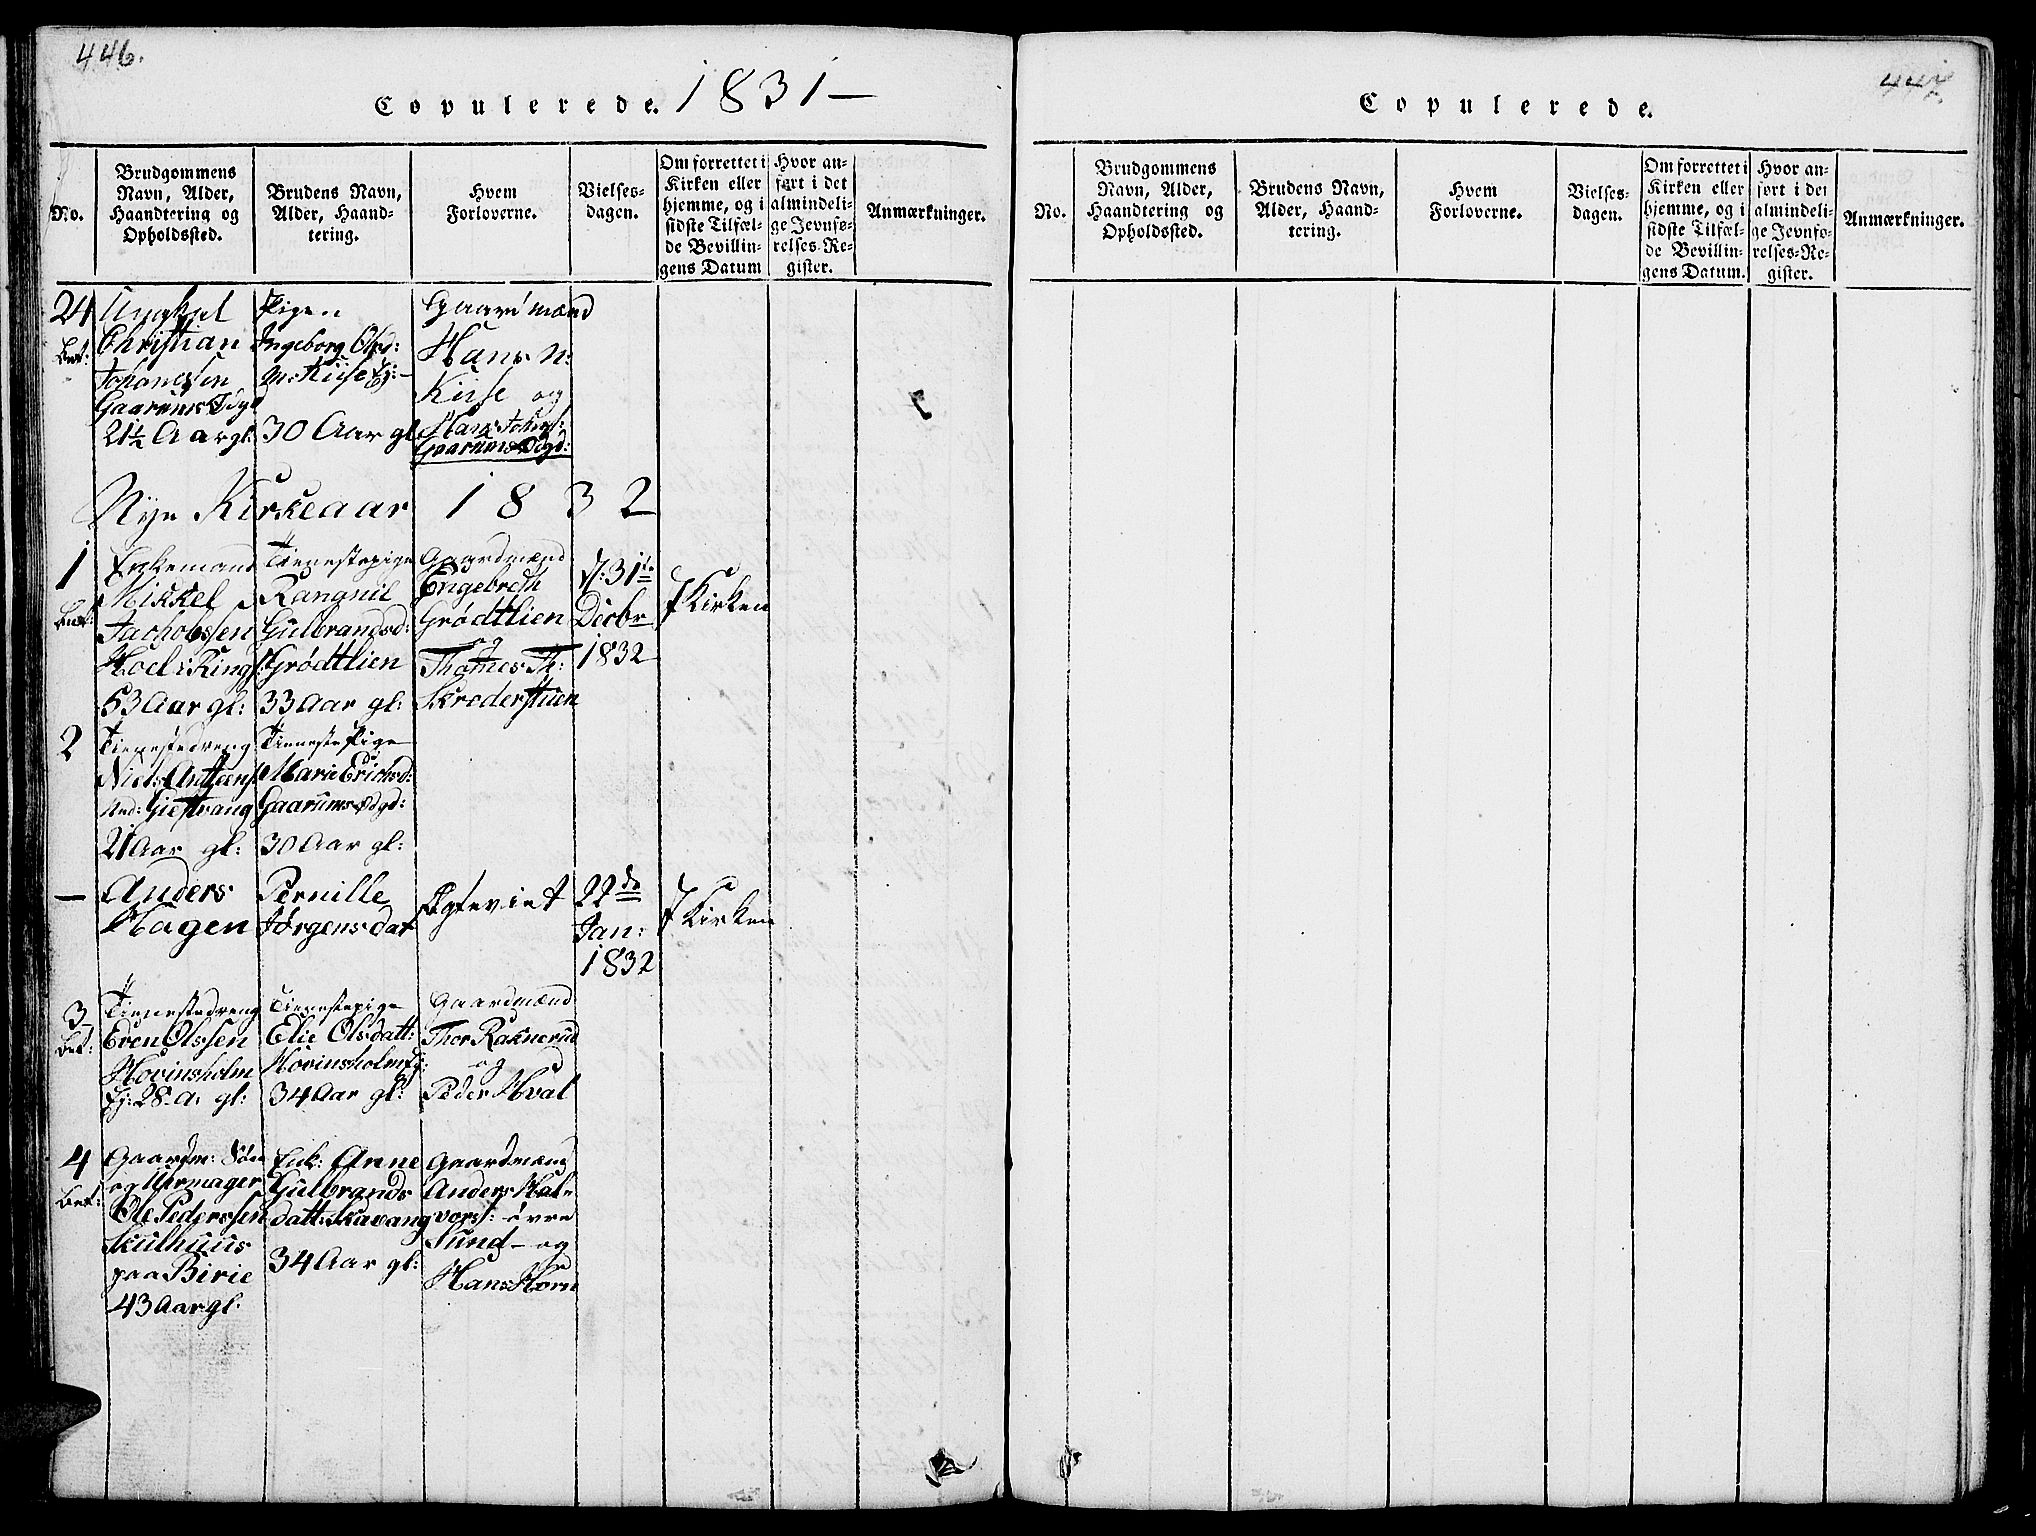 446.
Copulerede. 1831 —
No.
Brudgommens
Navn, Alder,
Haandtering og
Opholdssted.
Brudens Navn,
Alder, Haand-
tering.
Hvem
Forloverne.
Vielses-
dagen.
Om forrettet i
Kirken eller
hjemme, og i
sidste Tilfæl-
de Bevillin-
gens Datum
Hvor an-
ført i det
almindeli-
ge Jevnfø-
relses-Re-
gister.
Anmærkninger.
24
Bet:
Ungkarl
Christian
Johanessen
Gaarums Eyg
21½ Aar gl:
Pigen
Ingeborg Olsd:
M: Kiise Ej:
30 Aar gl
Gaardmænd
Hans N:
Kiise og
Hans Johs:
Gaarums Eyd:
Nye Kirkeaar 1832
1
Bet:
Enkemand
Mikkel
Jachobssen
Hoel i Rings:
53 Aar gl:
Tienestepige
Rangnil
Gulbrandsd:
Grødtlien
33 Aar gl:
Gaardmænd
Engebreth
Grødtlien
og
Thomes Th:
Skroderstuen
d: 31te
Decbr
1832
I Kirken
2
Tienestedreng
Niels Anttens:
And: Giestvang
21 Aar gl:
Tieneste Pige
Marie Erichsd:
Gaarums Edgd:
30 Aar gl:
—
Anders
Hagen
Pernille
Jørgensdat
Egteviet
22de
Jan:
1832
I Kirken
3
Bet:
Tienestedreng
Even Olssen
Hovinsholm
Ej: 28. A. gl:
Tienestepige
Elie Olsdatt:
Hovinsholm Ej:
34 Aar gl:
Gaardmænd
Thor Raknerud
og
Peder Hval
4
Bet:
Gaardm: Søn
og Uhrmager
Ole Pederssen
Skulhuus
paa Birie
43 Aar gl:
Enk: Anne
Gulbrands
datt: Skavang
34 Aar gl:
Gaardmænd
Anders Hal-
vors: øvre
Sund — og
Hans Horn
447.
Copulerede.
No.
Brudgommens
Navn, Alder,
Haandtering og
Opholdssted.
Brudens Navn,
Alder, Haand-
tering.
Hvem
Forloverne.
Vielses-
dagen.
Om forrettet i
Kirken eller
hjemme, og i
sidste Tilfæl-
de Bevillin-
gens Datum.
Hvor an-
ført i det
almindeli-
ge Jevnfø-
relses-Re-
gister.
Anmærkninger.